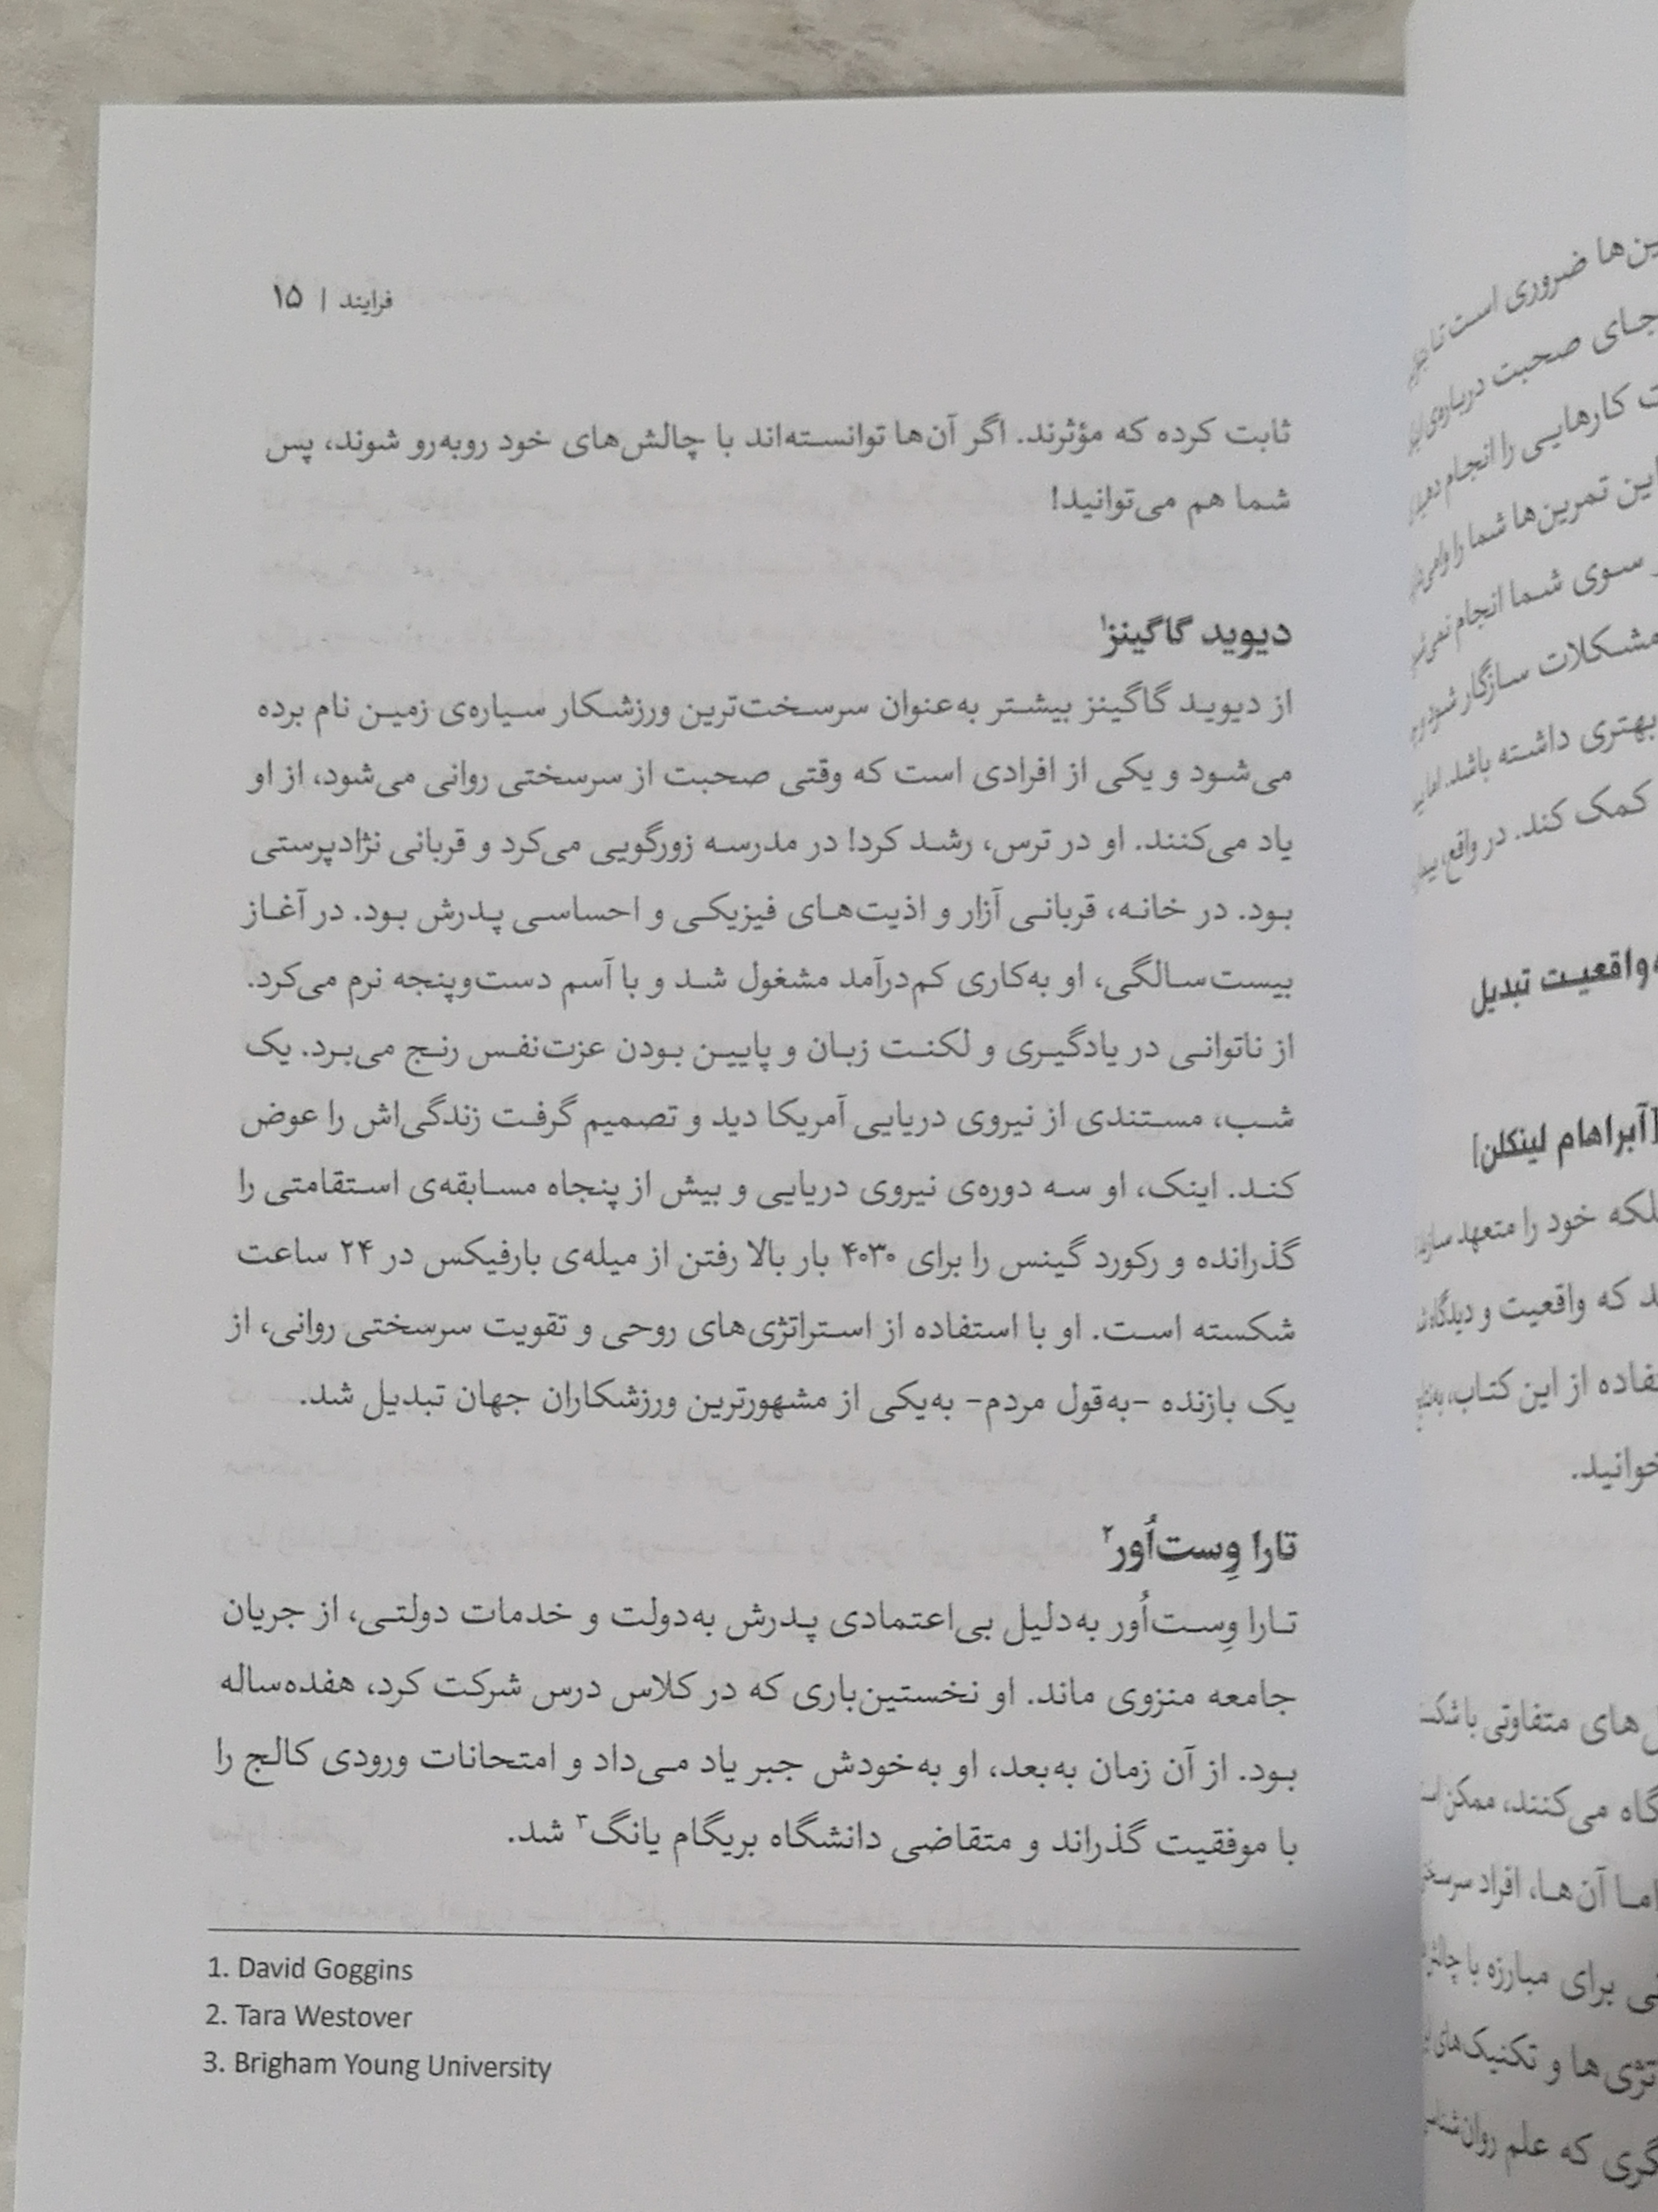 فرایند | ۱۵
ثابت کرده که مؤثرند. اگر آن‌ها توانسته‌اند با چالش‌های خود روبه‌رو شوند، پس
شما هم می‌توانید!
دیوید گاگینز۱
از دیوید گاگینز بیشتر به‌عنوان سرسخت‌ترین ورزشکار سیاره‌ی زمین نام برده
می‌شود و یکی از افرادی است که وقتی صحبت از سرسختی روانی می‌شود، از او
یاد می‌کنند. او در ترس، رشد کرد! در مدرسه زورگویی می‌کرد و قربانی نژادپرستی
بود. در خانه، قربانی آزار و اذیت‌های فیزیکی و احساسی پدرش بود. در آغاز
بیست‌سالگی، او به‌کاری کم‌درآمد مشغول شد و با آسم دست‌وپنجه نرم می‌کرد.
از ناتوانی در یادگیری و لکنت زبان و پایین بودن عزت‌نفس رنج می‌برد. یک
شب، مستندی از نیروی دریایی آمریکا دید و تصمیم گرفت زندگی‌اش را عوض
کند. اینک، او سه دوره‌ی نیروی دریایی و بیش از پنجاه مسابقه‌ی استقامتی را
گذرانده و رکورد گینس را برای ۴۰۳۰ بار بالا رفتن از میله‌ی بارفیکس در ۲۴ ساعت
شکسته است. او با استفاده از استراتژی‌های روحی و تقویت سرسختی روانی، از
یک بازنده -به‌قول مردم- به‌یکی از مشهورترین ورزشکاران جهان تبدیل شد.
تارا وِست‌اُور۲
تارا وِست‌اُور به‌دلیل بی‌اعتمادی پدرش به‌دولت و خدمات دولتی، از جریان
جامعه منزوی ماند. او نخستین‌باری که در کلاس درس شرکت کرد، هفده‌ساله
بود. از آن زمان به‌بعد، او به‌خودش جبر یاد می‌داد و امتحانات ورودی کالج را
با موفقیت گذراند و متقاضی دانشگاه بریگام یانگ۳ شد.
1. David Goggins
2. Tara Westover
3. Brigham Young University
ضروری است تا
جای صحبت درباره‌ی
کارهایی را انجام
این تمرین‌ها شما را
سوی شما انجام
مشکلات سازگار شود
بهتری داشته باشد. اما
کمک کند. در واقع،
واقعیت تبدیل
[آبراهام لینکلن]
خود را متعهد
که واقعیت و
از این کتاب،
متفاوتی
می‌کنند، ممکن
اما آن‌ها، افراد
برای مبارزه با
و تکنیک‌های
که علم